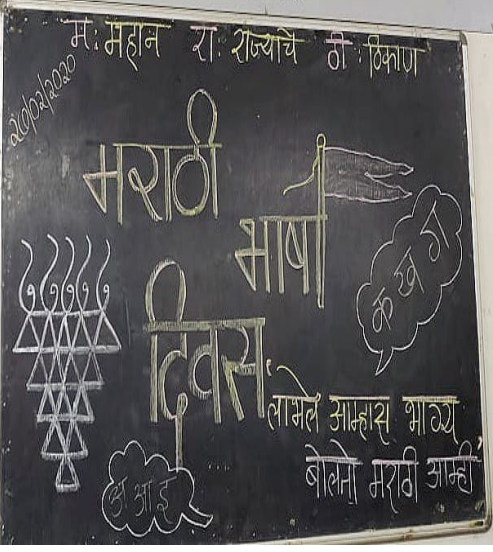 म: महान रा: राज्याचे ठी: ठिकाण
२७/०२/२०२०
मराठी
भाषा
क ख ग
दिवस
लाभले आम्हास भाग्य
बोलतो मराठी आम्ही
अ आ इ